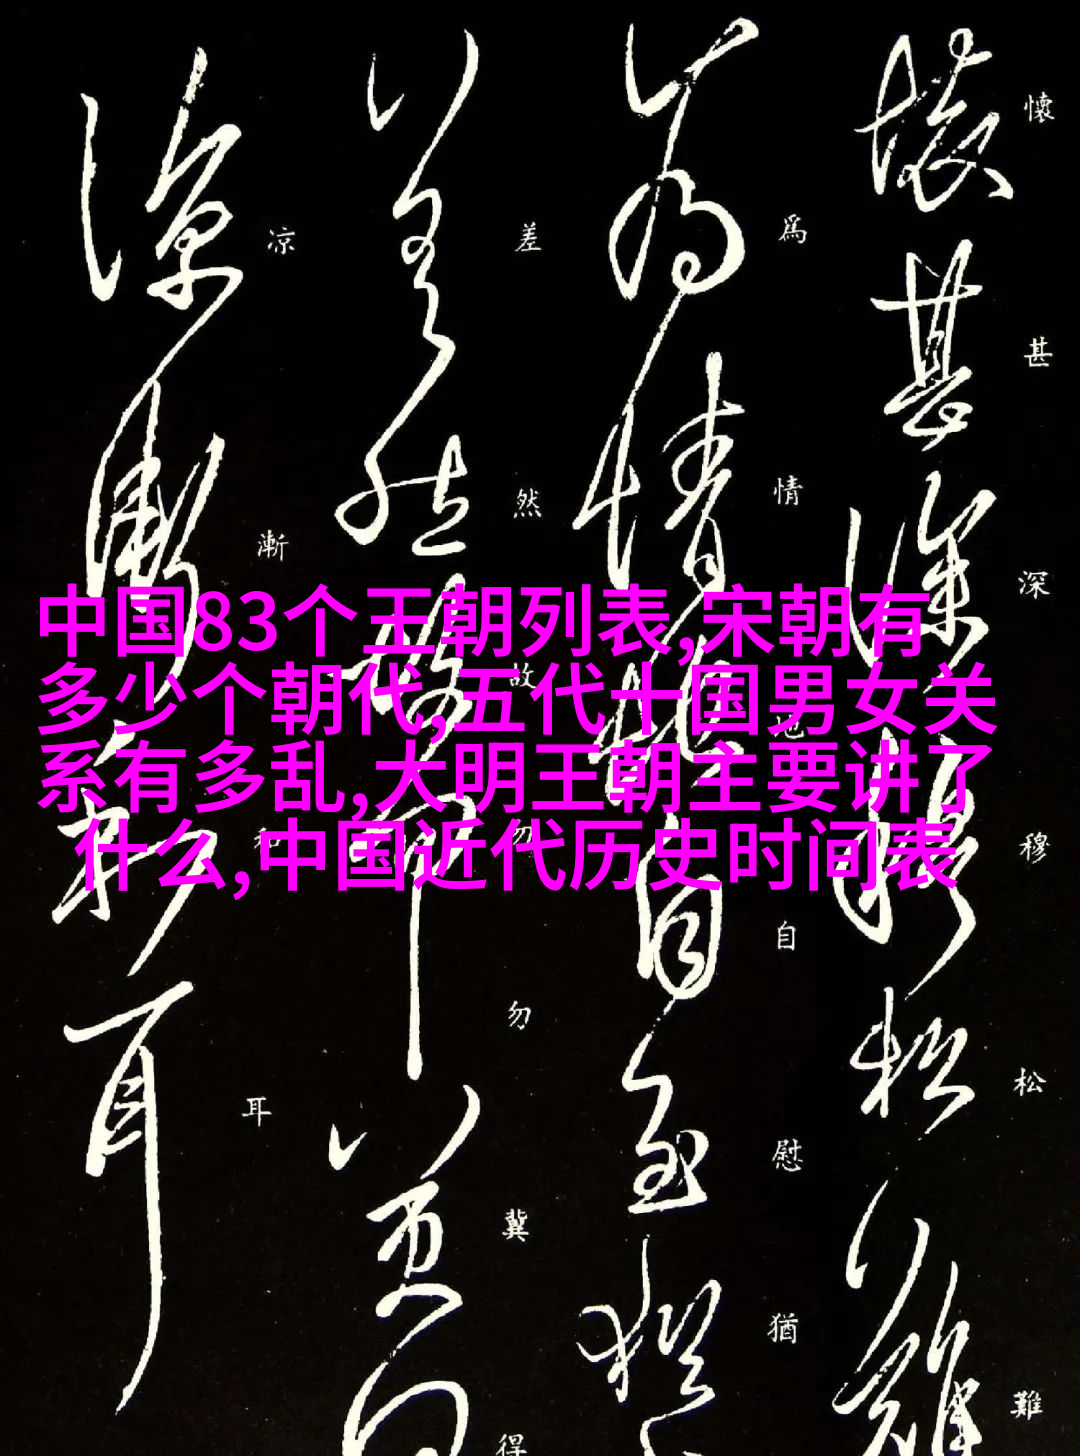 懷甚深穆松難
爲情地自慰猶
差然故勿勿冀得
凉漸和耳
中国83个王朝列表,宋朝有
多少个朝代,五代十国男女关
系有多乱,大明王朝主要讲了
什么,中国近代历史时间表